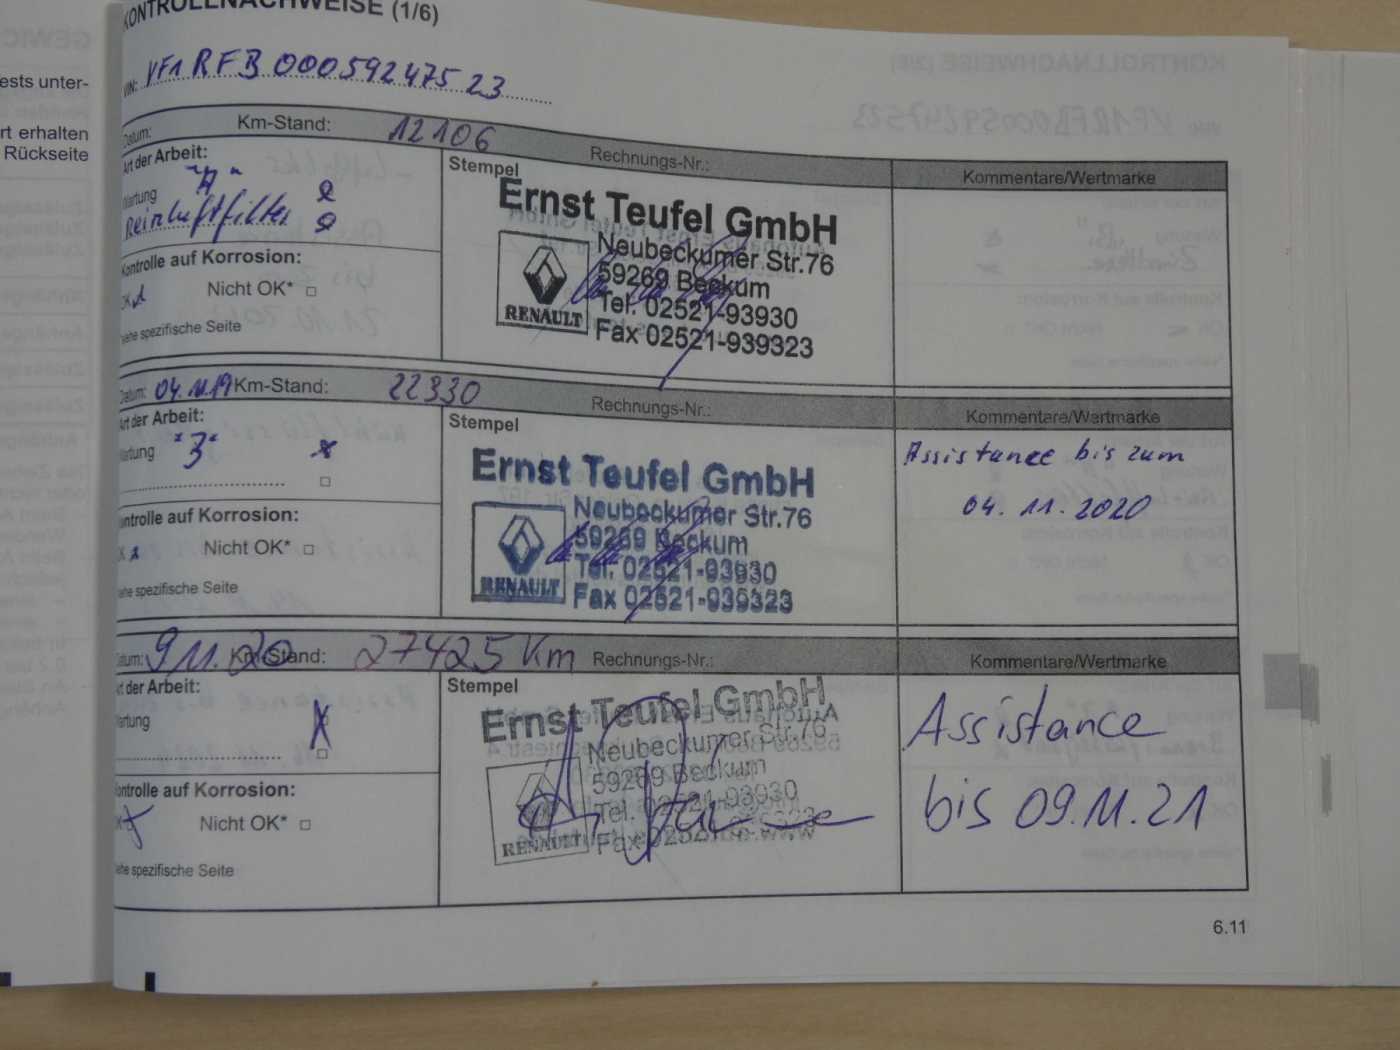 KONTROLLNACHWEISE (1/6)
ests unter-
rt erhalten
Rückseite
VIN: VF1RFB00059247523
Datum: Km-Stand: 12106 Rechnungs-Nr.:
Art der Arbeit:
Stempel
Kommentare/Wertmarke
Wartung
Reinluftfilter
Ernst Teufel GmbH
Neubeckumer Str.76
59269 Beckum
Tel. 02521-93930
Fax 02521-939323
RENAULT
Kontrolle auf Korrosion:
OK Nicht OK*
siehe spezifische Seite
Datum: 04.11.19 Km-Stand: 22330 Rechnungs-Nr.:
Kommentare/Wertmarke
Art der Arbeit:
Stempel
Wartung "3"
Assistance bis zum
04.11.2020
Ernst Teufel GmbH
Neubeckumer Str.76
59269 Beckum
Tel. 02521-93930
Fax 02521-939323
RENAULT
Kontrolle auf Korrosion:
OK Nicht OK*
siehe spezifische Seite
Datum: 9.11.20 Km-Stand: 27425 Km Rechnungs-Nr.:
Kommentare/Wertmarke
Art der Arbeit:
Stempel
Wartung
Assistance
bis 09.11.21
Ernst Teufel GmbH
Neubeckumer Str.76
59269 Beckum
Tel. 02521-93930
Fax 02521-939323
RENAULT
Kontrolle auf Korrosion:
OK Nicht OK*
siehe spezifische Seite
6.11